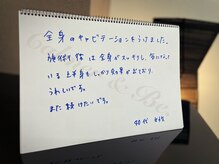 全身のキャビテーションをうけました。
施術後は全身がスッキリし、気になって
いる上半身もしっかり効果がでており、
うれしいです。
また受けたいです。